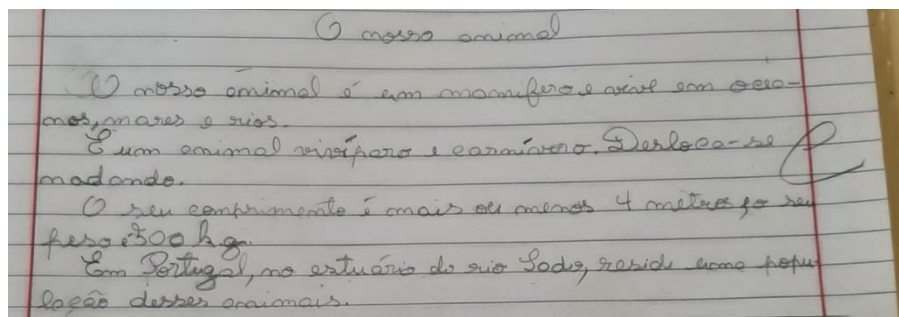 O nosso animal
O nosso animal é um mamífero e vive em ocea-
nos, mares e rios.
É um animal vivíparo e carnívoro. Desloca-se
nadando.
O seu comprimento é mais ou menos 4 metros, o seu
peso é 500 kg.
Em Portugal, no estuário do rio Sado, reside uma popu-
lação desses animais.